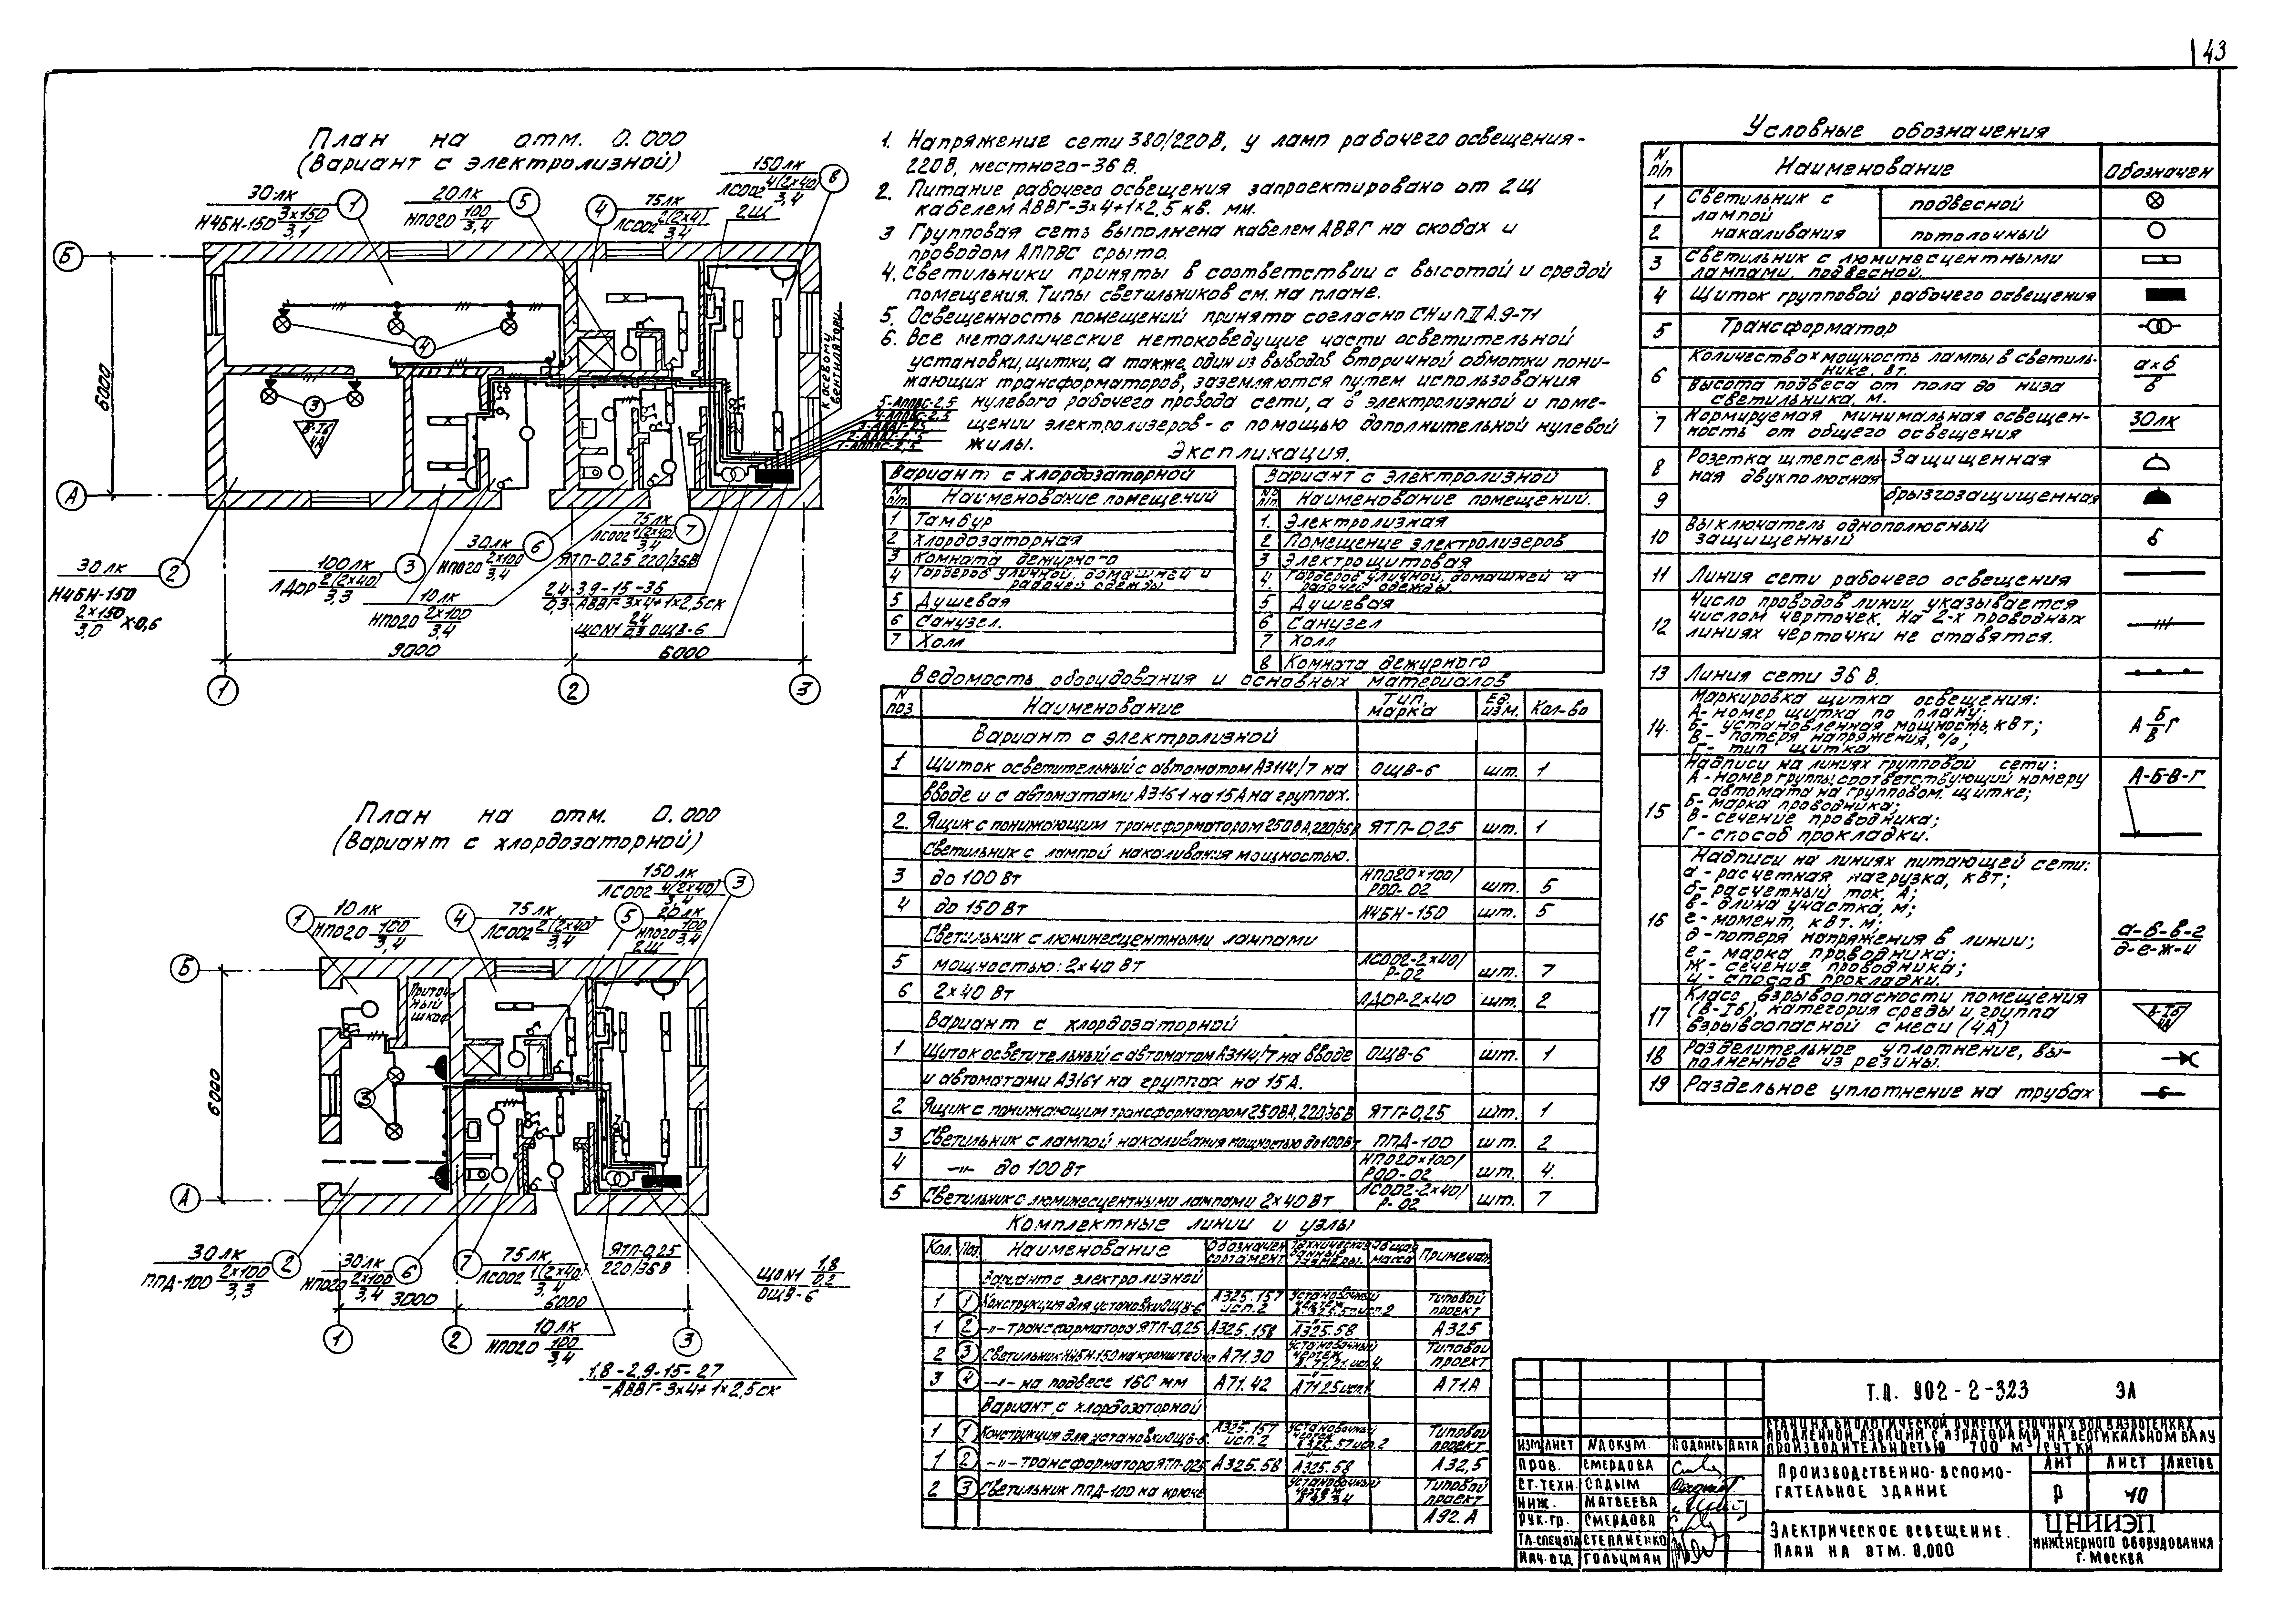 43
План на отм. 0.000
(Вариант с электролизной)
30 лк
Н4БН-150 3×150
3,1
1
20 лк
НПО20 100
3,4
5
4
75 лк
ЛСО02 2(2×4)
3,4
150 лк
ЛСО02 4(2×40)
3,4
2Щ
8
Б
А
6000
4
3
В-Iб
4А
К осевому
вентилятору.
5-АППВС-2,5
4-АППВС-2,5
30 лк
Н4БН-150
2×150 ×0,6
3,0
2
100 лк
ЛДОР 2(2×40)
3,3
3
30 лк
НПО20 2×100
3,4
6
10 лк
НПО20 2×100
3,4
75 лк
ЛСО02 1(2×40)
3,4
7
ЯТП-0.25 220/36В
2,4-3,9-15-36
0,3-АВВГ-3×4+1×2,5ск
ЩОN1 2,4 ОЩВ-6
0,3
9000
6000
1
2
3
План на отм. 0.000
(Вариант с хлордозаторной)
1
10 лк
НПО20 100
3,4
4
75 лк
ЛСО02 2(2×40)
3,4
150 лк
ЛСО02 4(2×40)
3,4
3
5
20 лк
НПО20 100
3,4
2Щ
Б
А
6000
Приточ-
ный
шкаф
3
30 лк
ППД-100 2×100
3,3
2
30 лк
НПО20 2×100
3,4
6
7
75 лк
ЛСО02 1(2×40)
3,4
ЯТП-0,25
220/36В
ЩОN1 1,8
0,2
ОЩВ-6
3000
6000
1
2
3
10 лк
НПО20 100
3,4
1,8-2,9-15-27
-АВВГ-3×4+1×2,5ск
1. Напряжение сети 380/220В, у ламп рабочего освещения-
220В, местного-36 В.
2. Питание рабочего освещения запроектировано от 2Щ
кабелем АВВГ-3×4+1×2,5 кв. мм.
3 Групповая сеть выполнена кабелем АВВГ на скобах и
проводом АППВС срыто.
4. Светильники приняты в соответствии с высотой и средой
помещения. Типы светильников см. на плане.
5. Освещенность помещений принята согласно СНиП II А.9-71
6. Все металлические нетоковедущие части осветительной
установки, щитки, а также один из выводов вторичной обмотки пони-
жающих трансформаторов, заземляются путем использования
нулевого рабочего провода сети, а в электролизной и поме-
щении электролизеров - с помощью дополнительной нулевой
жилы.
Экспликация.
Вариант с хлордозаторной
N п/п Наименование помещений
1 Тамбур
2 Хлордозаторная
3 Комната дежурного
4 Гардероб уличной, домашней и
рабочей одежды
5 Душевая
6 Санузел.
7 Холл
Вариант с электролизной
No п/п. Наименование помещений.
1. Электролизная
2 Помещение электролизеров
3 Электрощитовая
4. Гардероб уличной, домашней и
рабочей одежды.
5 Душевая
6 Санузел
7 Холл
8 Комната дежурного
Ведомость оборудования и основных материалов
N поз Наименование Тип, марка Ед. изм. Кол-во
Вариант с электролизной
1 Щиток осветительный с автоматом А3114/7 на ОЩВ-6 шт. 1
вводе и с автоматами А3161 на 15А на группах.
2. Ящик с понижающим трансформатором 250ВА, 220/36В ЯТП-0,25 шт. 1
Светильник с лампой накаливания мощностью.
3 до 100 Вт НПО20×100/Р00-02 шт. 5
4 до 150 Вт Н4БН-150 шт. 5
Светильник с люминесцентными лампами
5 мощностью: 2×40 Вт ЛСО02-2×40/Р-02 шт. 7
6 2×40 Вт ЛДОР-2×40 шт. 2
Вариант с хлордозаторной
1 Щиток осветительный с автоматом А3114/7 на вводе ОЩВ-6 шт. 1
и автоматами А3161 на группах на 15 А.
2 Ящик с понижающим трансформатором 250ВА, 220/36В ЯТП-0,25 шт. 1
3 Светильник с лампой накаливания мощностью до 100Вт ППД-100 шт. 2
4 -"- до 100 Вт НПО20×100/Р00-02 шт. 4.
5 Светильник с люминесцентными лампами 2×40 Вт ЛСО02-2×40/Р-02 шт. 7
Комплектные линии и узлы
Кол. Поз. Наименование Обозначен сортамент. Технические данные размеры. Общая масса Примечан.
Вариант с электролизной
1 1 Конструкция для установки ОЩВ-6 А325.157 исп.2 Установочный чертеж А325.57 исп.2 Типовой проект
1 2 -"- трансформатора ЯТП-0,25 А325.158 А325.58 А325
2 3 Светильник Н4БН-150 на кронштейне А71.30 Установочный чертеж А.71.21 исп.4 Типовой проект
3 4 -"- на подвесе 160 мм А71.42 А71.25 исп.1 А71.А
Вариант с хлордозаторной
1 1 Конструкция для установки ОЩВ-6 А325.157 исп.2 Установочный чертеж А325.57 исп.2 Типовой проект
1 2 -"- трансформатора ЯТП-025 А325.58 А325.58 А32,5
2 3 Светильник ППД-100 на крюке Установочный чертеж А.92.34 Типовой проект
А92.А
Условные обозначения
N п/п Наименование Обозначен
1 Светильник с лампой накаливания подвесной
2 потолочный
3 Светильник с люминесцентными
лампами, подвесной.
4 Щиток групповой рабочего освещения
5 Трансформатор
6 Количество×мощность лампы в светиль-
нике, вт.
Высота подвеса от пола до низа
светильника, м.
а×б
в
7 Нормируемая минимальная освещен-
ность от общего освещения
30 лк
8 Розетка штепсель-
ная двухполюсная Защищенная
9 брызгозащищенная
10 Выключатель однополюсный
защищенный
11 Линия сети рабочего освещения
12 Число проводов линии указывается
числом черточек. На 2-х проводных
линиях черточки не ставятся.
13 Линия сети 36 В.
14. Маркировка щитка освещения:
А- номер щитка по плану;
Б- установленная мощность, кВт;
В- потеря напряжения, %;
Г- тип щитка.
А Б Г
В
15 Надписи на линиях групповой сети:
А- номер группы соответствующий номеру
автомата на групповом щитке;
Б- марка проводника;
В- сечение проводника;
Г- способ прокладки.
А-Б-В-Г
16 Надписи на линиях питающей сети:
а- расчетная нагрузка, кВт;
б- расчетный ток, А;
в- длина участка, м;
г- момент, кВт.м;
д- потеря напряжения в линии;
е- марка проводника;
ж- сечение проводника;
и- способ прокладки.
а-б-в-г
д-е-ж-и
17 Класс взрывоопасности помещения
(В-Iб), категория среды и группа
взрывоопасной смеси (4А)
В-Iб
4А
18 Разделительное уплотнение, вы-
полненное из резины.
19 Раздельное уплотнение на трубах
Т.П. 902-2-323 ЭЛ
Станция биологической очистки сточных вод в аэротенках
продленной аэрации с аэраторами на вертикальном валу
производительностью 700 м³/сутки
Изм Лист Nдокум. Подпись Дата
Пров. Смердова
Ст.техн. Садым
Инж. Матвеева
Рук.гр. Смердова
Гл.спец.отд Степаненко
Нач.отд Гольцман
Производственно-вспомо-
гательное здание
Лит Лист Листов
Р 10
Электрическое освещение.
План на отм. 0,000
ЦНИИЭП
инженерного оборудования
г. Москва